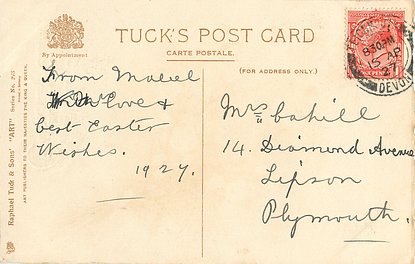 TUCK'S POST CARD
CARTE POSTALE.
By Appointment
(FOR ADDRESS ONLY.)
Raphael Tuck & Sons' "ART" Series No.
ART PUBLISHERS TO THEIR MAJESTIES THE KING & QUEEN.
From Mabel
With Love &
best Easter
Wishes.
1927.
Mrs Cahill
14. Diamond Avenue
Lipson
Plymouth.
8 30 AM
15 AP
27
DEVON